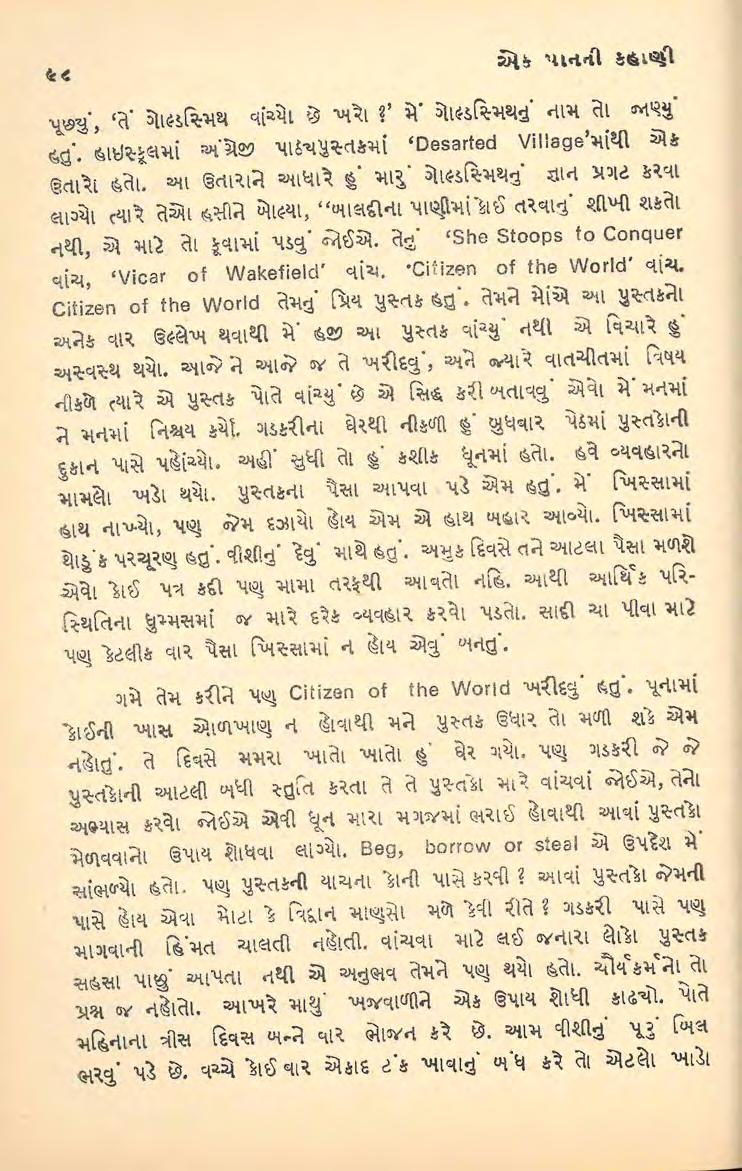 ૯૮
એક પાનની કહાણી
પૂછ્યું, ‘તેં ગોલ્ડસ્મિથ વાંચ્યો છે ખરો ?’ મેં ગોલ્ડસ્મિથનું નામ તો જાણ્યું
હતું. હાઇસ્કૂલમાં અંગ્રેજી પાઠ્યપુસ્તકમાં ‘Desarted Village’માંથી એક
ઉતારો હતો. આ ઉતારાને આધારે હું મારું ગોલ્ડસ્મિથનું જ્ઞાન પ્રગટ કરવા
લાગ્યો ત્યારે તેઓ હસીને બોલ્યા, “બાલદીના પાણીમાં કોઈ તરવાનું શીખી શકતો
નથી, એ માટે તો કૂવામાં પડવું જોઈએ. તેનું ‘She Stoops to Conquer
વાંચ, ‘Vicar of Wakefield’ વાંચ. ‘Citizen of the World’ વાંચ.
Citizen of the World તેમનું પ્રિય પુસ્તક હતું. તેમને મોંએ આ પુસ્તકનો
અનેક વાર ઉલ્લેખ થવાથી મેં હજી આ પુસ્તક વાંચ્યું નથી એ વિચારે હું
અસ્વસ્થ થયો. આજે ને આજે જ તે ખરીદવું, અને જ્યારે વાતચીતમાં વિષય
નીકળે ત્યારે એ પુસ્તક પોતે વાંચ્યું છે એ સિદ્ધ કરી બતાવવું એવો મેં મનમાં
ને મનમાં નિશ્ચય કર્યો. ગડકરીના ઘેરથી નીકળી હું બુધવાર પેઠમાં પુસ્તકોની
દુકાન પાસે પહોંચ્યો. અહીં સુધી તો હું કશીક ધૂનમાં હતો. હવે વ્યવહારનો
મામલો ખડો થયો. પુસ્તકના પૈસા આપવા પડે એમ હતું. મેં ખિસ્સામાં
હાથ નાખ્યો, પણ જેમ દઝાયો હોય એમ એ હાથ બહાર આવ્યો. ખિસ્સામાં
થોડુંક પરચૂરણ હતું. વીશીનું દેવું માથે હતું. અમુક દિવસે તને આટલા પૈસા મળશે
એવો કોઈ પત્ર કદી પણ મામા તરફથી આવતો નહિ. આથી આર્થિક પરિ-
સ્થિતિના ધુમ્મસમાં જ મારે દરેક વ્યવહાર કરવો પડતો. સાદી ચા પીવા માટે
પણ કેટલીક વાર પૈસા ખિસ્સામાં ન હોય એવું બનતું.
ગમે તેમ કરીને પણ Citizen of the World ખરીદવું હતું. પૂનામાં
કોઈની ખાસ ઓળખાણ ન હોવાથી મને પુસ્તક ઉધાર તો મળી શકે એમ
નહોતું. તે દિવસે મમરા ખાતો ખાતો હું ઘેર ગયો. પણ ગડકરી જે જે
પુસ્તકોની આટલી બધી સ્તુતિ કરતા તે તે પુસ્તકો મારે વાંચવાં જોઈએ, તેનો
અભ્યાસ કરવો જોઈએ એવી ધૂન મારા મગજમાં ભરાઈ હોવાથી આવાં પુસ્તકો
મેળવવાનો ઉપાય શોધવા લાગ્યો. Beg, borrow or steal એ ઉપદેશ મેં
સાંભળ્યો હતો. પણ પુસ્તકની યાચના કોની પાસે કરવી ? આવાં પુસ્તકો જેમની
પાસે હોય એવા મોટા કે વિદ્વાન માણસો મળે કેવી રીતે ? ગડકરી પાસે પણ
માગવાની હિંમત ચાલતી નહોતી. વાંચવા માટે લઈ જનારા લોકો પુસ્તક
સહસા પાછું આપતા નથી એ અનુભવ તેમને પણ થયો હતો. ચૌર્યકર્મનો તો
પ્રશ્ન જ નહોતો. આખરે માથું ખજવાળીને એક ઉપાય શોધી કાઢ્યો. પોતે
મહિનાના ત્રીસ દિવસ બન્ને વાર ભોજન કરે છે. આમ વીશીનું પૂરું બિલ
ભરવું પડે છે. વચ્ચે કોઈ વાર એકાદ ટંક ખાવાનું બંધ કરે તો એટલો ખાડો